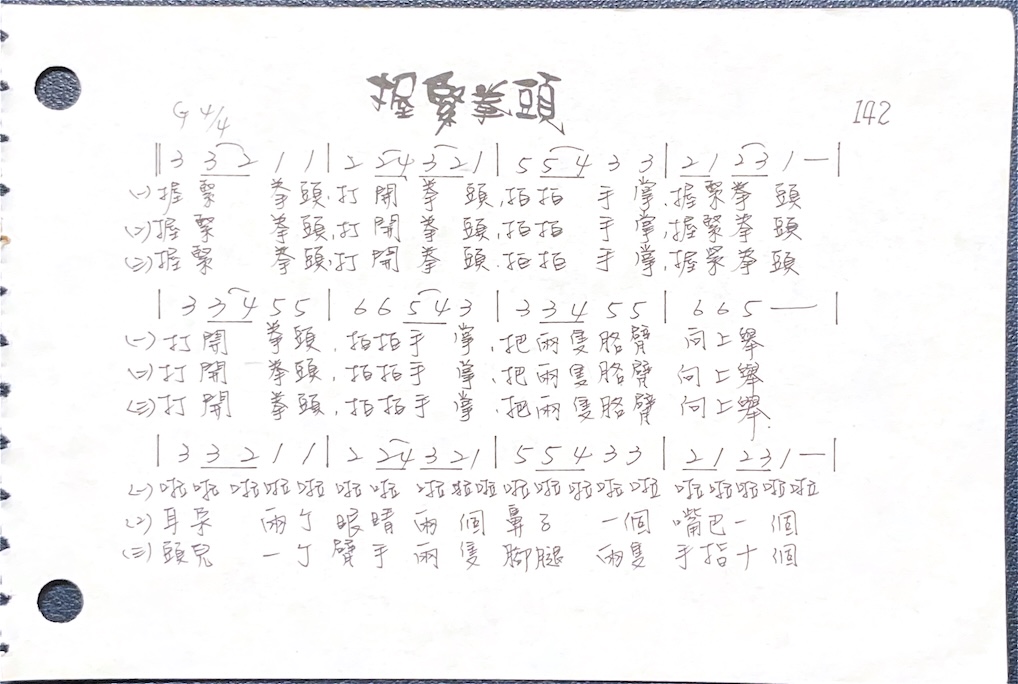 握緊拳頭
G 4/4
142
‖3 3 2 1 1 | 2 24 321 | 5 5 4 3 3 | 21 231 — |
(一)握緊 拳頭,打開拳頭,拍拍手掌,握緊拳頭
(二)握緊 拳頭,打開拳頭,拍拍手掌,握緊拳頭
(三)握緊 拳頭,打開拳頭,拍拍手掌,握緊拳頭
| 3 34 55 | 66 543 | 3 34 55 | 665 — |
(一)打開 拳頭,拍拍手掌,把兩隻胳臂 向上舉
(二)打開 拳頭,拍拍手掌,把兩隻胳臂 向上舉
(三)打開 拳頭,拍拍手掌,把兩隻胳臂 向上舉.
| 3 3 2 1 1 | 2 24 321 | 5 54 33 | 21 231 — |
(一)啦啦 啦啦啦 啦啦 啦啦啦 啦啦啦啦啦 啦啦啦啦啦
(二)耳朵 兩个 眼睛 兩個 鼻子 一個 嘴巴一個
(三)頭兒 一个 臂手 兩隻 腳腿 兩隻 手指十個